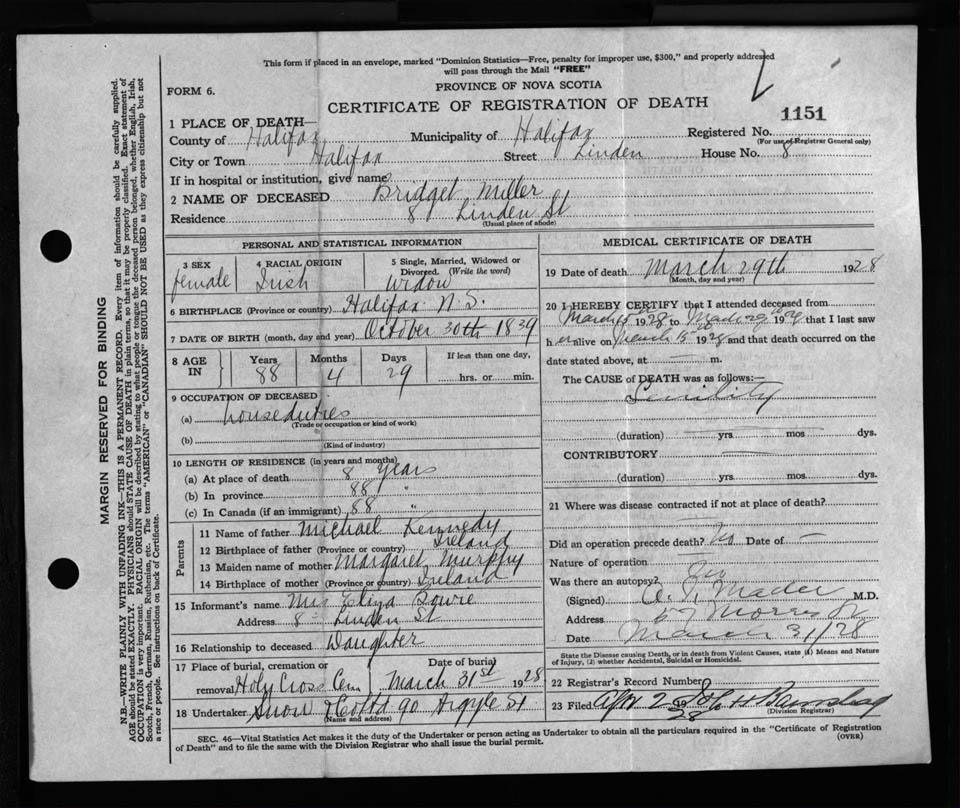 This form if placed in an envelope, marked "Dominion Statistics—Free, penalty for improper use, $300," and properly addressed
will pass through the Mail "FREE"
FORM 6.
PROVINCE OF NOVA SCOTIA
CERTIFICATE OF REGISTRATION OF DEATH
1151
1 PLACE OF DEATH—
County of Halifax Municipality of Halifax Registered No.
(For use of Registrar General only)
City or Town Halifax Street Linden House No. 8
If in hospital or institution, give name
2 NAME OF DECEASED Bridget Miller
Residence 8 Linden St
(Usual place of abode)
PERSONAL AND STATISTICAL INFORMATION
3 SEX female
4 RACIAL ORIGIN Irish
5 Single, Married, Widowed or Divorced. (Write the word) Widow
6 BIRTHPLACE (Province or country) Halifax N.S.
7 DATE OF BIRTH (month, day and year) October 30th 1839
8 AGE IN
Years Months Days If less than one day,
88 4 29 hrs. or min.
9 OCCUPATION OF DECEASED
(a) house duties
(Trade or occupation or kind of work)
(b)
(Kind of industry)
10 LENGTH OF RESIDENCE (in years and months)
(a) At place of death 8 years
(b) In province 88 "
(c) In Canada (if an immigrant) 88 "
Parents
11 Name of father Michael Kennedy
12 Birthplace of father (Province or country) Ireland
13 Maiden name of mother Margaret Murphy
14 Birthplace of mother (Province or country) Ireland
15 Informant's name Mrs Eliza Bowie
Address 8 - Linden St
16 Relationship to deceased Daughter
17 Place of burial, cremation or removal Holy Cross Cem
Date of burial March 31st 1928
18 Undertaker Snow & Co Ltd 90 Argyle St
(Name and address)
MEDICAL CERTIFICATE OF DEATH
19 Date of death March 29th 1928
(Month, day and year)
20 I HEREBY CERTIFY that I attended deceased from
March 15 1928 to March 29 1928 that I last saw
her alive on March 15 1928 and that death occurred on the
date stated above, at — m.
The CAUSE of DEATH was as follows:—
Senility
(duration) yrs. mos. dys.
CONTRIBUTORY
(duration) yrs. mos. dys.
21 Where was disease contracted if not at place of death?
Did an operation precede death? No Date of —
Nature of operation
Was there an autopsy?
(Signed) Mader M.D.
Address Morris St
Date March 31/28
State the Disease causing Death, or in death from Violent Causes, state (1) Means and Nature
of Injury, (2) whether Accidental, Suicidal or Homicidal.
22 Registrar's Record Number
23 Filed Apr 2 1928
(Division Registrar)
SEC. 46—Vital Statistics Act makes it the duty of the Undertaker or person acting as Undertaker to obtain all the particulars required in the "Certificate of Registration
of Death" and to file the same with the Division Registrar who shall issue the burial permit.
(OVER)
MARGIN RESERVED FOR BINDING
N.B.—WRITE PLAINLY WITH UNFADING INK—THIS IS A PERMANENT RECORD. Every item of information should be carefully supplied.
AGE should be stated EXACTLY. PHYSICIANS should STATE CAUSE OF DEATH in plain terms, so that it may be properly classified. Exact statement of
OCCUPATION is very important. RACIAL ORIGIN will be described by stating to what people or tongue the deceased person belonged, whether English, Irish,
Scotch, French, German, Russian, Ruthenian, etc. The terms "AMERICAN" or "CANADIAN" SHOULD NOT BE USED as they express citizenship but not
a race or people. See instructions on back of Certificate.